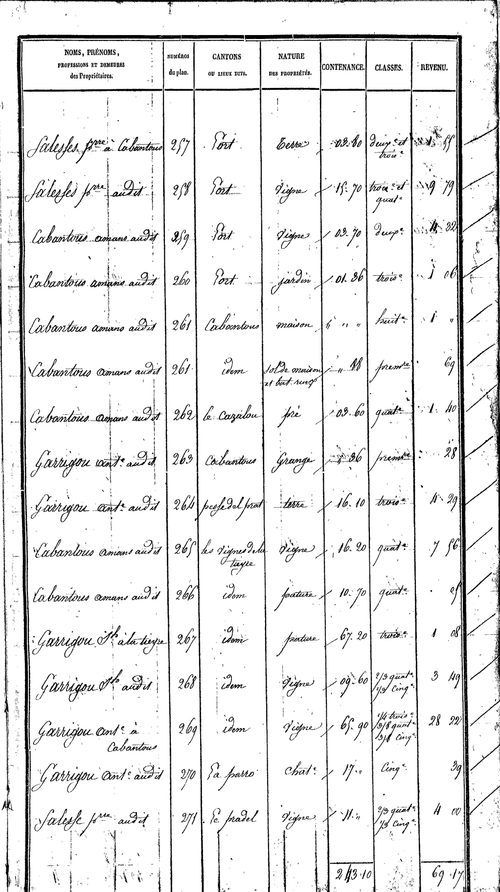 NOMS, PRÉNOMS, PROFESSIONS ET DEMEURES des Propriétaires. NUMÉROS du plan. CANTONS OU LIEUX DITS. NATURE DES PROPRIÉTÉS. CONTENANCE. CLASSES. REVENU.
Salesses pre à Cabantous 257 Port terre 02.80 deuxe et trois 1 55
Salesses pre audit 258 Port vigne 15.70 trois et quate 9 79
Cabantous amans audit 259 Port vigne 03.70 deuxe 4 32
Cabantous amans audit 260 Port jardin 01.36 trois 1 06
Cabantous amans audit 261 Cabantous maison " " huite 1 "
Cabantous amans audit 261 idem sol de maison premre 69
Cabantous amans audit 262 le Cazalou pré 03.60 quate 1 40
Garrigou ante audit 263 Cabantous Grange 36 premre 28
Garrigou ante audit 264 pesse del prat terre 16.10 trois 4 29
Cabantous amans audit 265 les vignes de la tieyre vigne 16.20 quate 7 56
Cabantous amans audit 266 idem pature 10.70 quate
Garrigou Jh à la tieyre 267 idem pature 67.20 trois 1 08
Garrigou Jh audit 268 idem vigne 09.60 2/3 quate 1/3 cinqe 3 49
Garrigou ante à Cabantous 269 idem vigne 65.90 1/4 trois 3/8 quate 3/8 cinqe 28 22
Garrigou ante audit 270 La parro chate 17 " cinqe 39
Salesse pre audit 271 Le pradel vigne 11 " 2/3 quate 1/3 cinqe 4 00
243.10 69.17